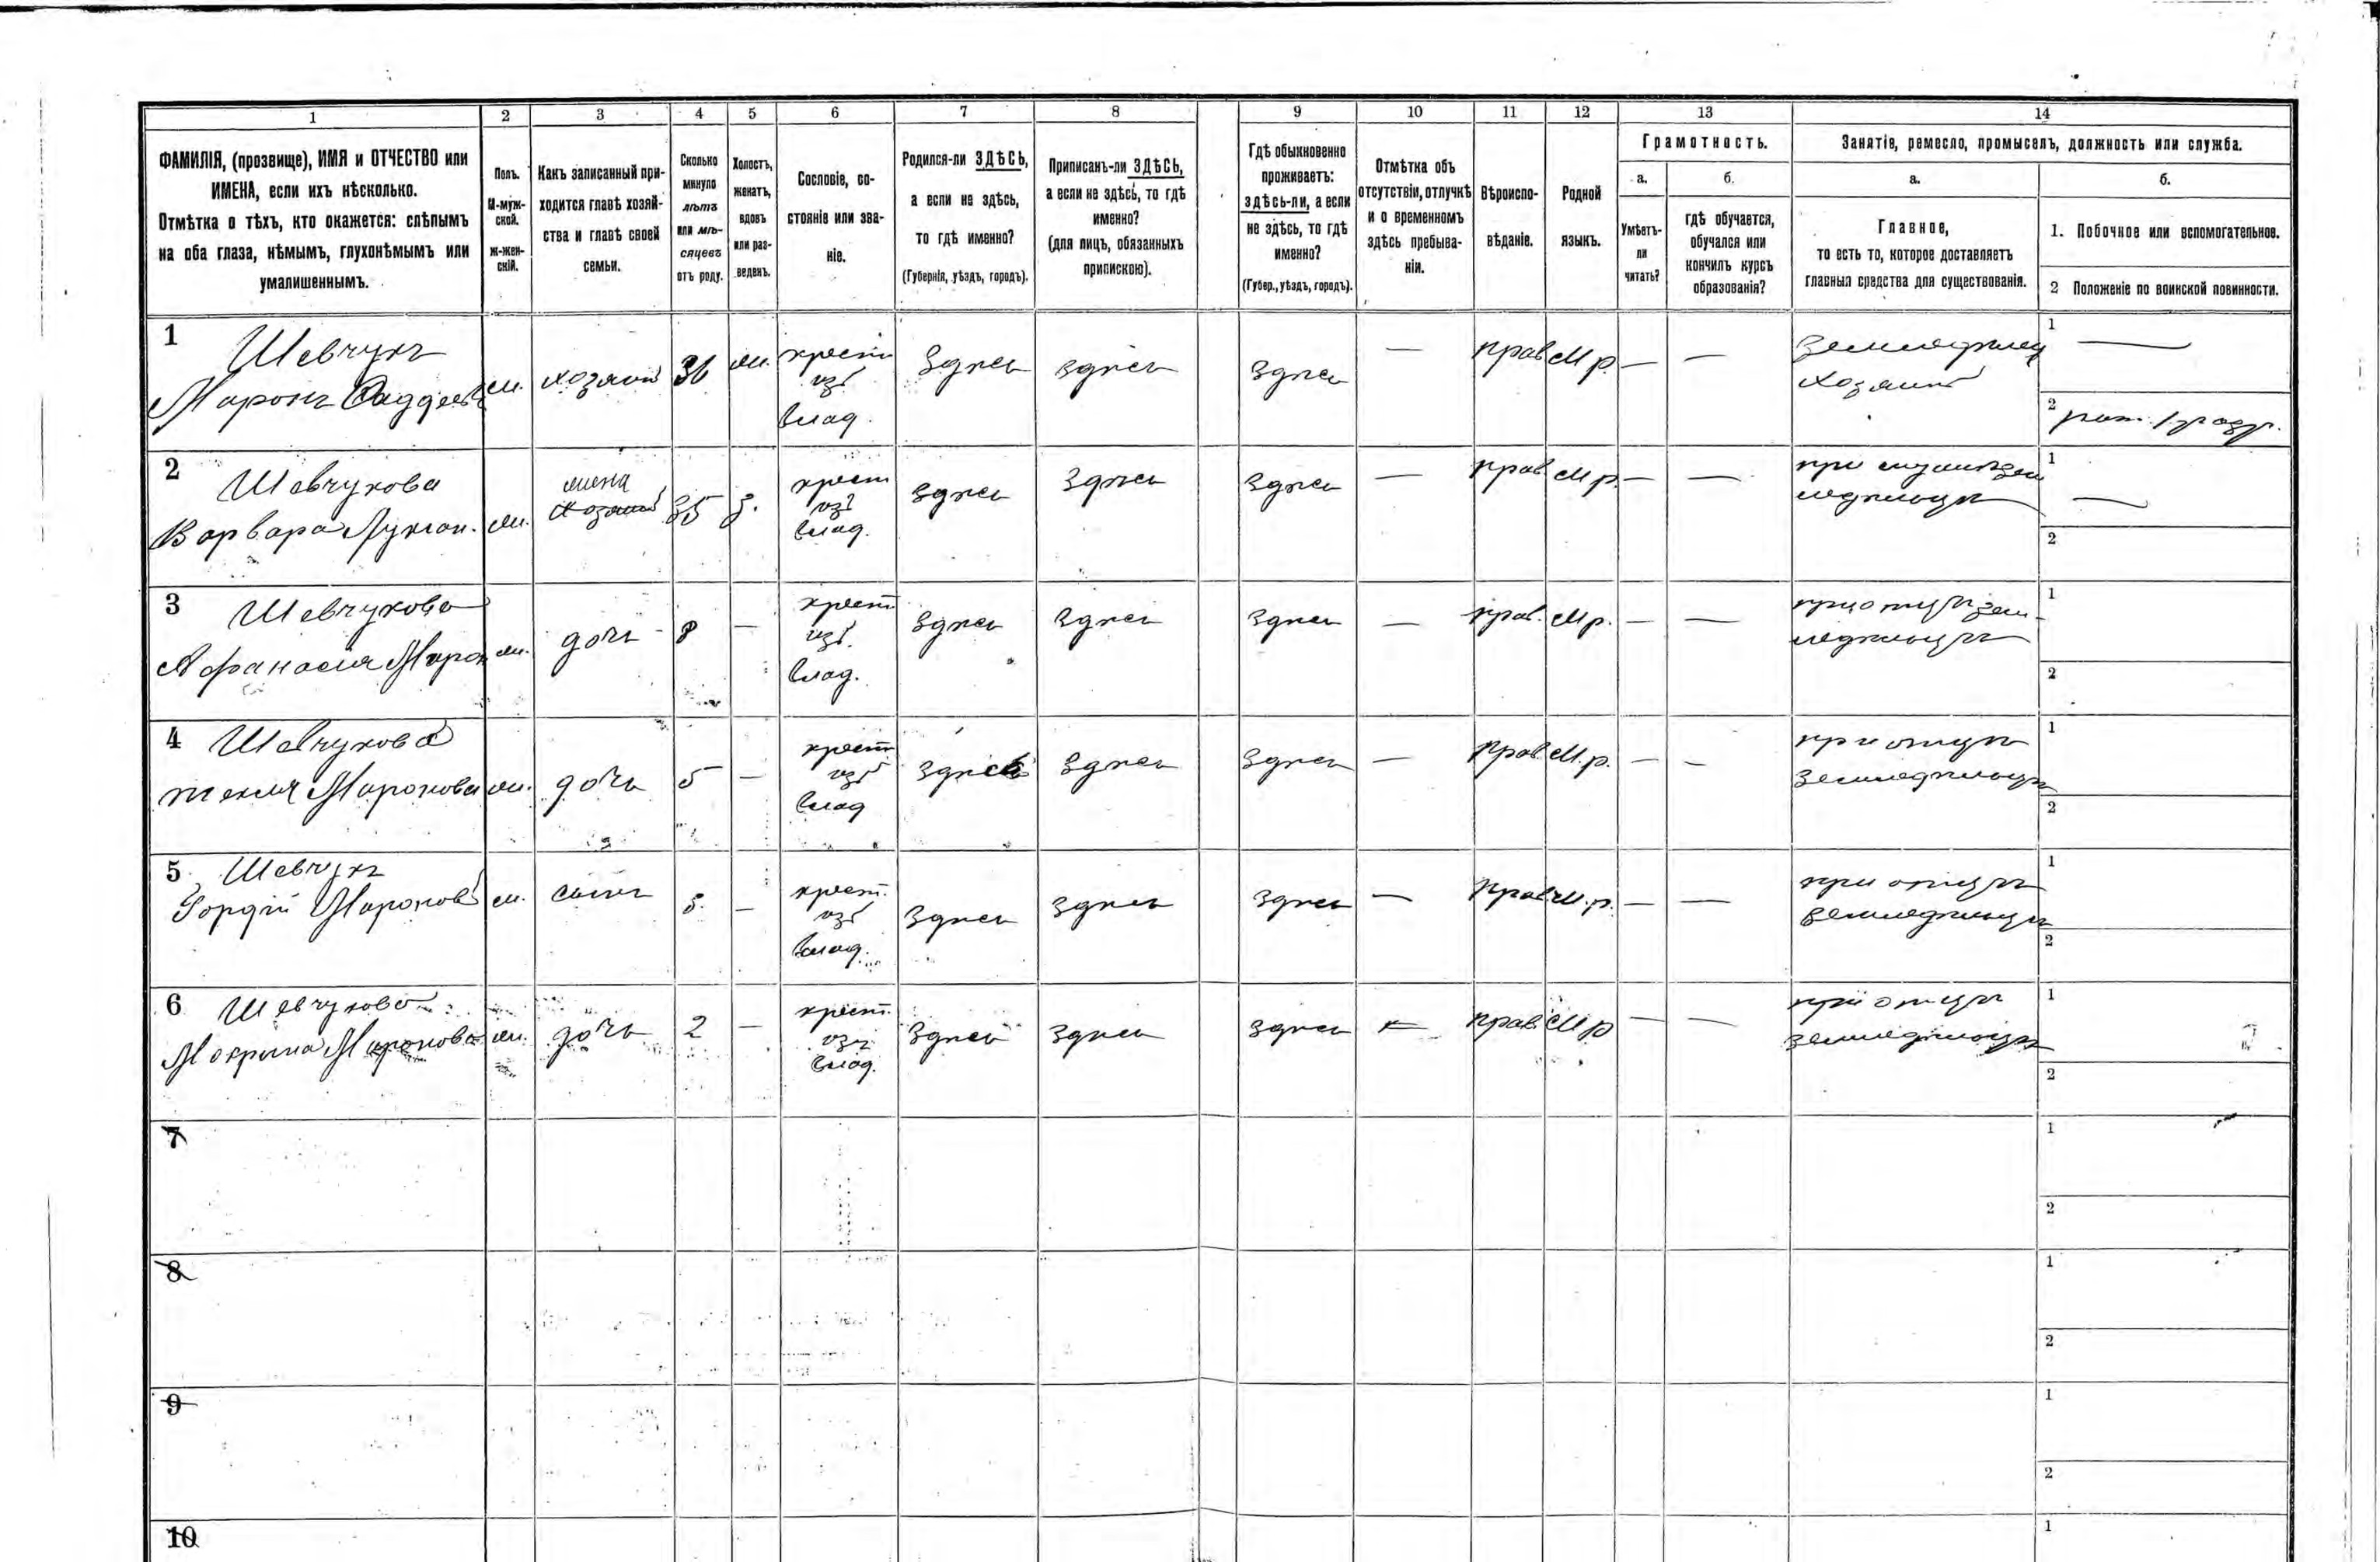 1 2 3 4 5 6 7 8 9 10 11 12 13 14
ФАМИЛІЯ, (прозвище), ИМЯ и ОТЧЕСТВО или
ИМЕНА, если ихъ нѣсколько.
Отмѣтка о тѣхъ, кто окажется: слѣпымъ
на оба глаза, нѣмымъ, глухонѣмымъ или
умалишеннымъ.
Полъ.
М-муж-
ской.
Ж-жен-
скій.
Какъ записанный при-
ходится главѣ хозяй-
ства и главѣ своей
семьи.
Сколько
минуло
лѣтъ
или мѣ-
сяцевъ
отъ роду.
Холостъ,
женатъ,
вдовъ
или раз-
веденъ.
Сословіе, со-
стояніе или зва-
ніе.
Родился-ли ЗДѢСЬ,
а если не здѣсь,
то гдѣ именно?
(Губернія, уѣздъ, городъ).
Приписанъ-ли ЗДѢСЬ,
а если не здѣсь, то гдѣ
именно?
(для лицъ, обязанныхъ
припискою).
Гдѣ обыкновенно
проживаетъ:
здѣсь-ли, а если
не здѣсь, то гдѣ
именно?
(Губер., уѣздъ, городъ).
Отмѣтка объ
отсутствіи, отлучкѣ
и о временномъ
здѣсь пребыва-
ніи.
Вѣроиспо-
вѣданіе.
Родной
языкъ.
Грамотность.
а. б.
Умѣетъ-
ли
читать?
гдѣ обучается,
обучался или
кончилъ курсъ
образованія?
Занятіе, ремесло, промыселъ, должность или служба.
а. б.
Главное,
то есть то, которое доставляетъ
главныя средства для существованія.
1. Побочное или вспомогательное.
2 Положеніе по воинской повинности.
1 Шевчукъ
Миронъ Фаддеев м. хозяин 36 ж. крест из влад. Здѣсь здѣсь Здѣсь — прав М р. — — земледѣлец хозяин 1 —
2 рат. 1 разр.
2 Шевчукова
Варвара Лукіан. ж. жена хозяина 35 з. крест из влад. здѣсь здѣсь здѣсь — прав. М р. — — при мужѣ зем
ледѣльцѣ 1 —
2
3 Шевчукова
Афанасія Мирон ж. дочь 8 — крест из. влад. здѣсь здѣсь здѣсь — прав. М р. — — при отцѣ зем-
ледѣльцѣ 1
2
4 Шевчукова
Текля Миронова ж. дочь 5 — крест из влад здѣсь здѣсь здѣсь — прав М. р. — — при отцѣ
земледѣльцѣ 1
2
5 Шевчукъ
Гордій Миронов м. сынъ — крест. из влад. здѣсь здѣсь здѣсь — прав М. р. — — при отцѣ
земледѣльцѣ 1
2
6 Шевчукова
Мокрина Миронова ж. дочь 2 — крест. из влад. здѣсь здѣсь здѣсь — прав М р — — при отцѣ
земледѣльцѣ 1
2
7 1
2
8 1
2
9 1
2
10 1